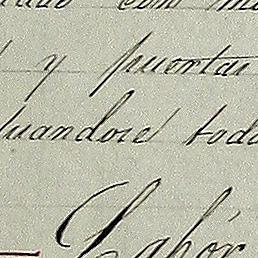 com
y puertas
uandose toda
Labór